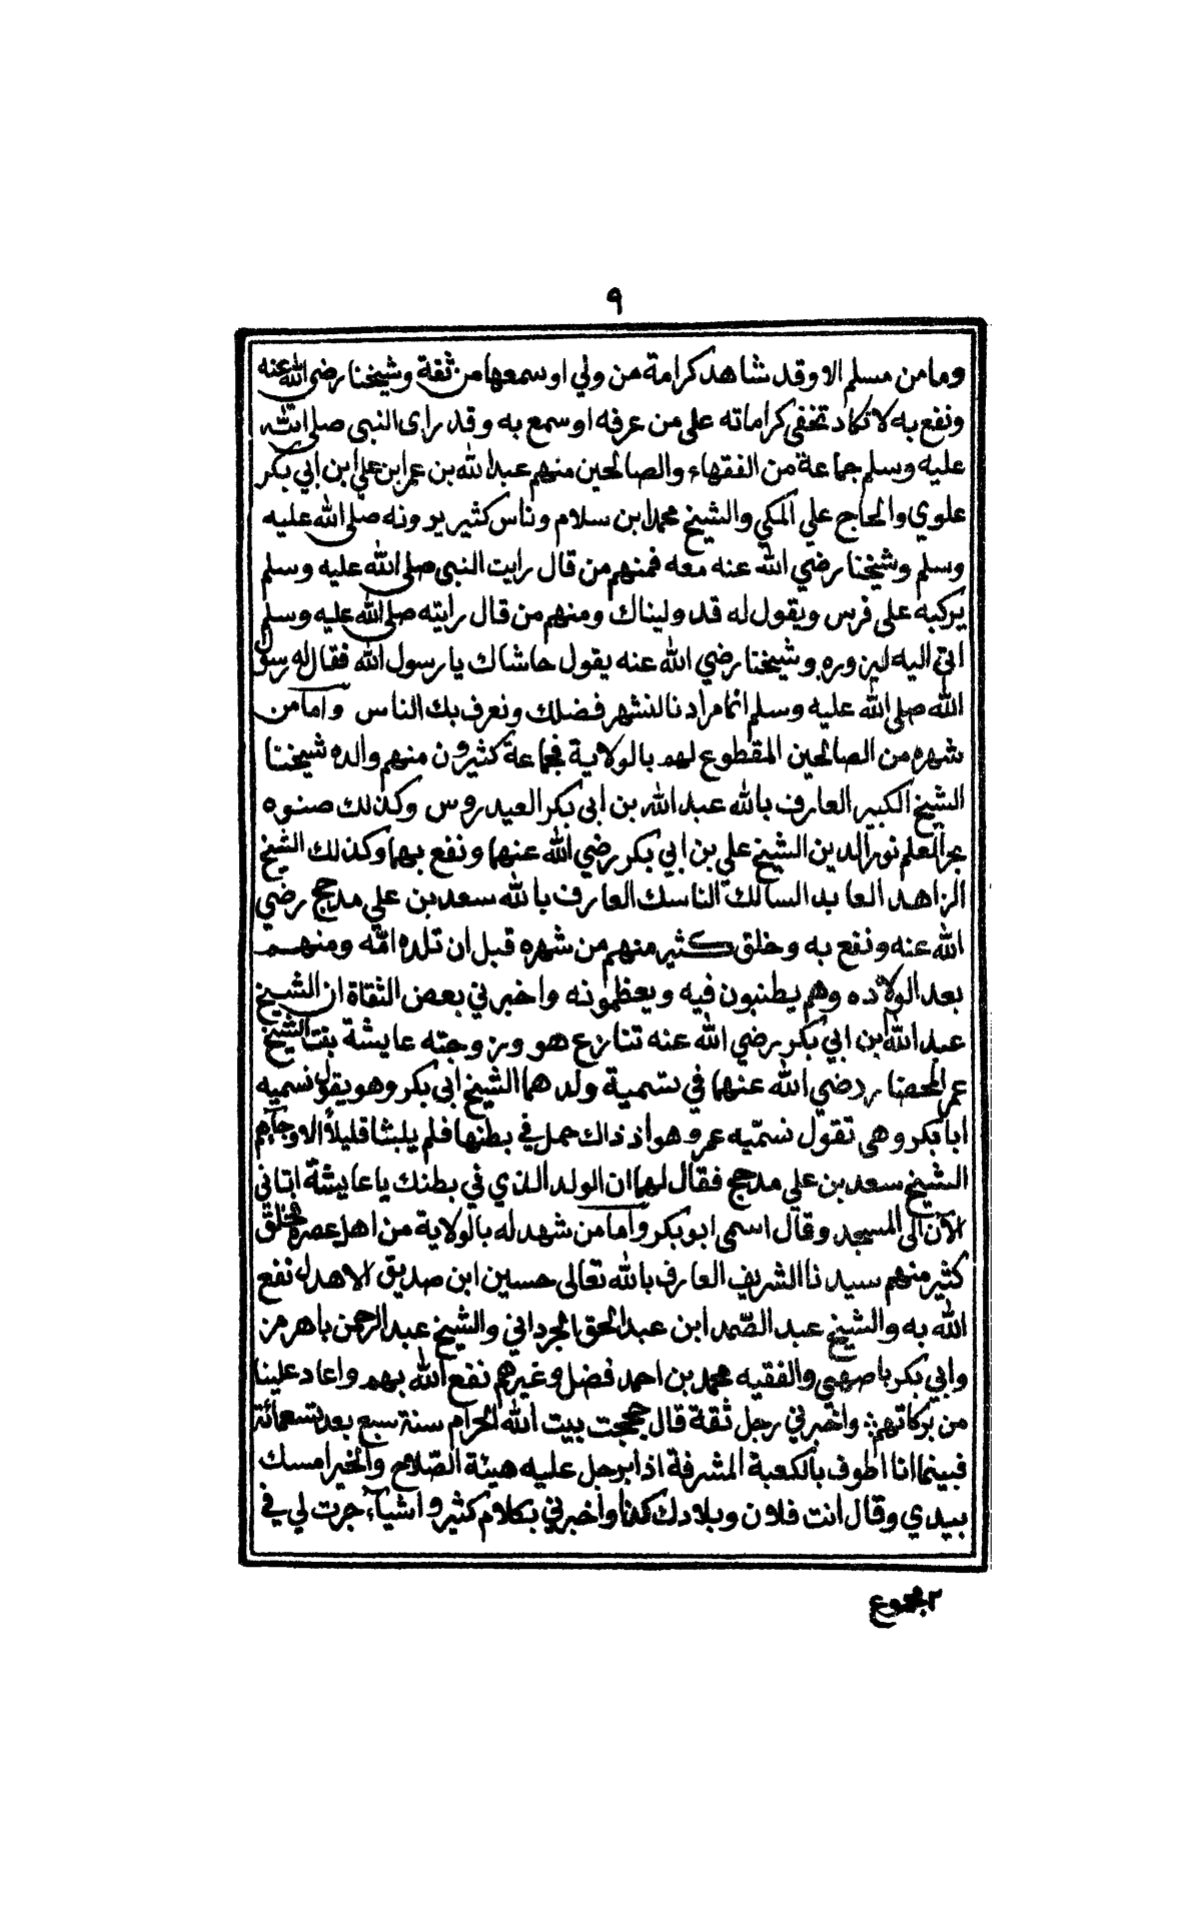 ٩
ومامن مسلم الا وقد شاهد كرامة من ولي اوسمعها من ثقة وشيخنا رضي الله عنه
ونفع به لا تكاد تخفى كراماته على من عرفه اوسمع به وقد راى النبى صلى الله
عليه وسلم جماعة من الفقهاء والصالحين منهم عبدالله بن عمر ابن علي ابن ابي بكر
علوي والحاج علي المكي والشيخ محمد ابن سلام وناس كثير يرونه صلى الله عليه
وسلم وشيخنا رضي الله عنه معه فمنهم من قال رايت النبى صلى الله عليه وسلم
يركبه على فرس ويقول له قد وليناك ومنهم من قال رايته صلى الله عليه وسلم
اتى اليه ليزوره وشيخنا رضي الله عنه يقول حاشاك يا رسول الله فقال له رسول
الله صلى الله عليه وسلم انما مرادنا لننشهر فضلك ونعرف بك الناس وامامن
شهره من الصالحين المقطوع لهم بالولاية فجماعة كثيرون منهم والده شيخنا
الشيخ الكبير العارف بالله عبد الله بن ابى بكر العيدروس وكذلك صنوه
بحر العلم نور الدين الشيخ علي بن ابي بكر رضي الله عنهما ونفع بهما وكذلك الشيخ
الزاهد العابد السالك الناسك العارف بالله سعد بن علي مدحج رضي
الله عنه ونفع به وخلق كثير منهم من شهره قبل ان تلده امّه ومنهم
بعد الولاده وهم يطنبون فيه ويعظمونه واخبرني بعض الثقاة ان الشيخ
عبد الله ابن ابي بكر رضي الله عنه تنازع هو وزوجته عايشة بنت الشيخ
عمر المحضار رضي الله عنهما في تسمية ولدهما الشيخ ابى بكر وهو يقول نسميه
ابا بكر وهى تقول نسمّيه عمر وهو اذ ذاك حمل في بطنها فلم يلبثا قليلاً الا وجآءهم
الشيخ سعد بن علي مدحج فقال لها ان الولد الذي في بطنك يا عايشة اتانى
الآن الى المسجد وقال اسمى ابو بكر وامامن شهد له بالولاية من اهل عصره فخلق
كثير منهم سيدنا الشريف العارف بالله تعالى حسين ابن صديق الاهدل نفع
الله به والشيخ عبد الصّمد ابن عبد الحق الجرداني والشيخ عبد الرحمن باهرمز
وابي بكر باصهي والفقيه محمد بن احمد فضل وغيرهم نفع الله بهم واعاد علينا
من بركاتهم؛ واخبرني رجل ثقة قال حججت بيت الله الحرام سنة سبع بعد تسعمائة
فبينما انا اطوف بالكعبة المشرفة اذا برجل عليه هيئة الصّلاح والخير امسك
بيدي وقال انت فلان وبلادك كذا واخبرني بكلام كثير واشيآء جرت لي في
٢ مجموع